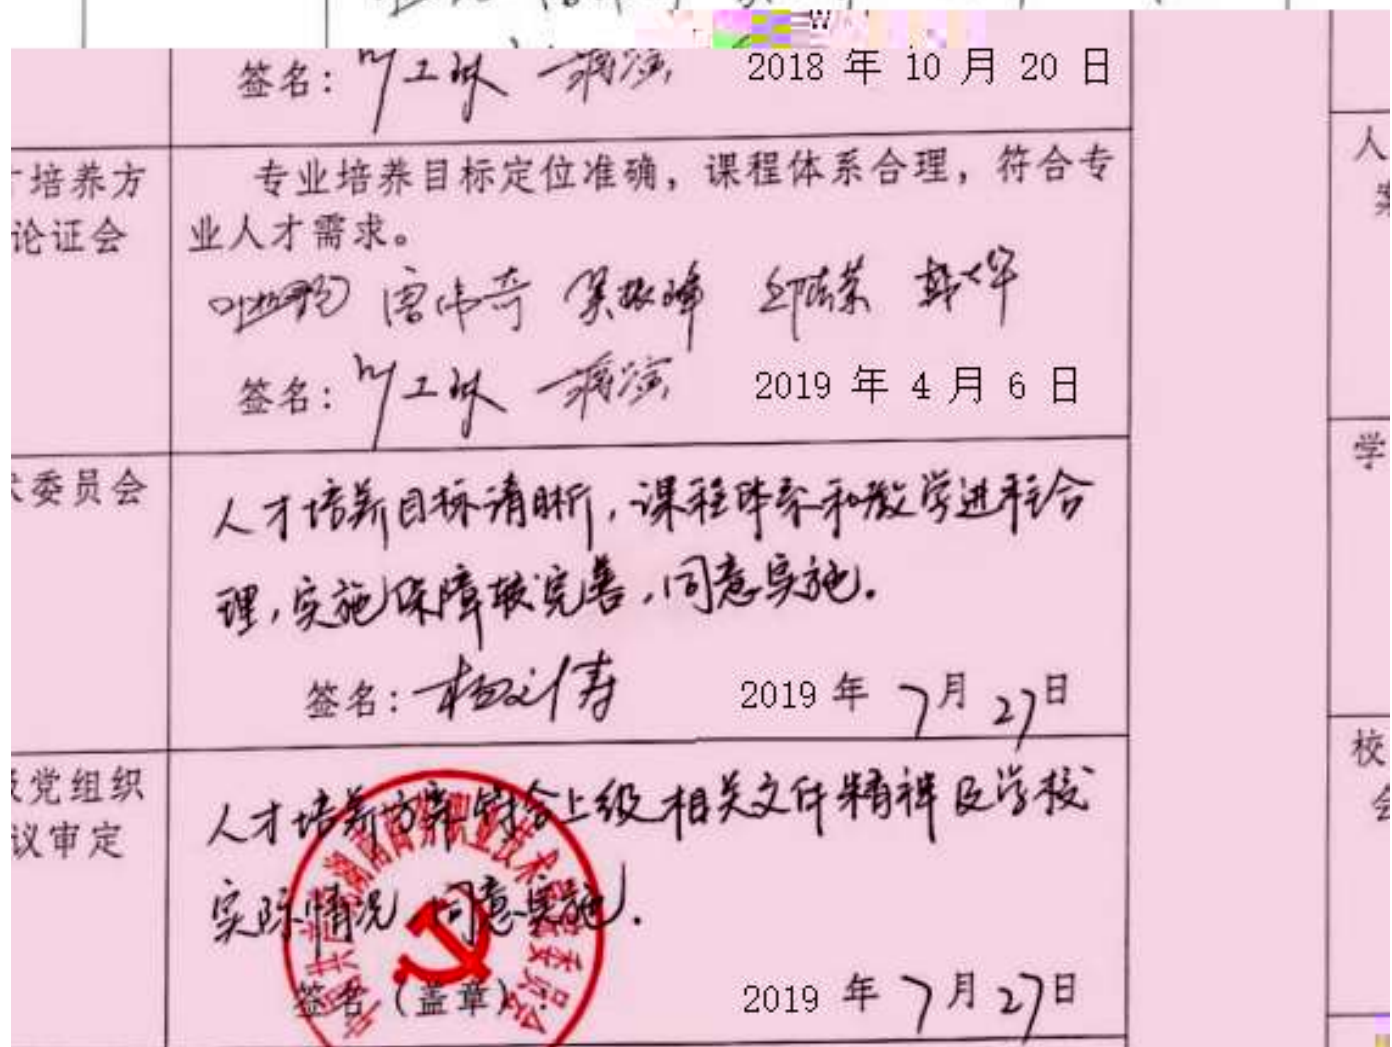 签名： 2018 年 10 月 20 日
人
培养方
专业培养目标定位准确，课程体系合理，符合专
案
论证会
业人才需求。
唐伟奇 吴振峰 邱志荣
签名： 2019 年 4 月 6 日
学
委员会
人才培养目标清晰，课程体系和教学进程合
理，实施保障较完善，同意实施。
签名： 2019 年 7 月 27 日
校
党组织
人才培养方案符合上级相关文件精神及学校
会
议审定
实际情况，同意实施。
签名（盖章）： 2019 年 7 月 27 日